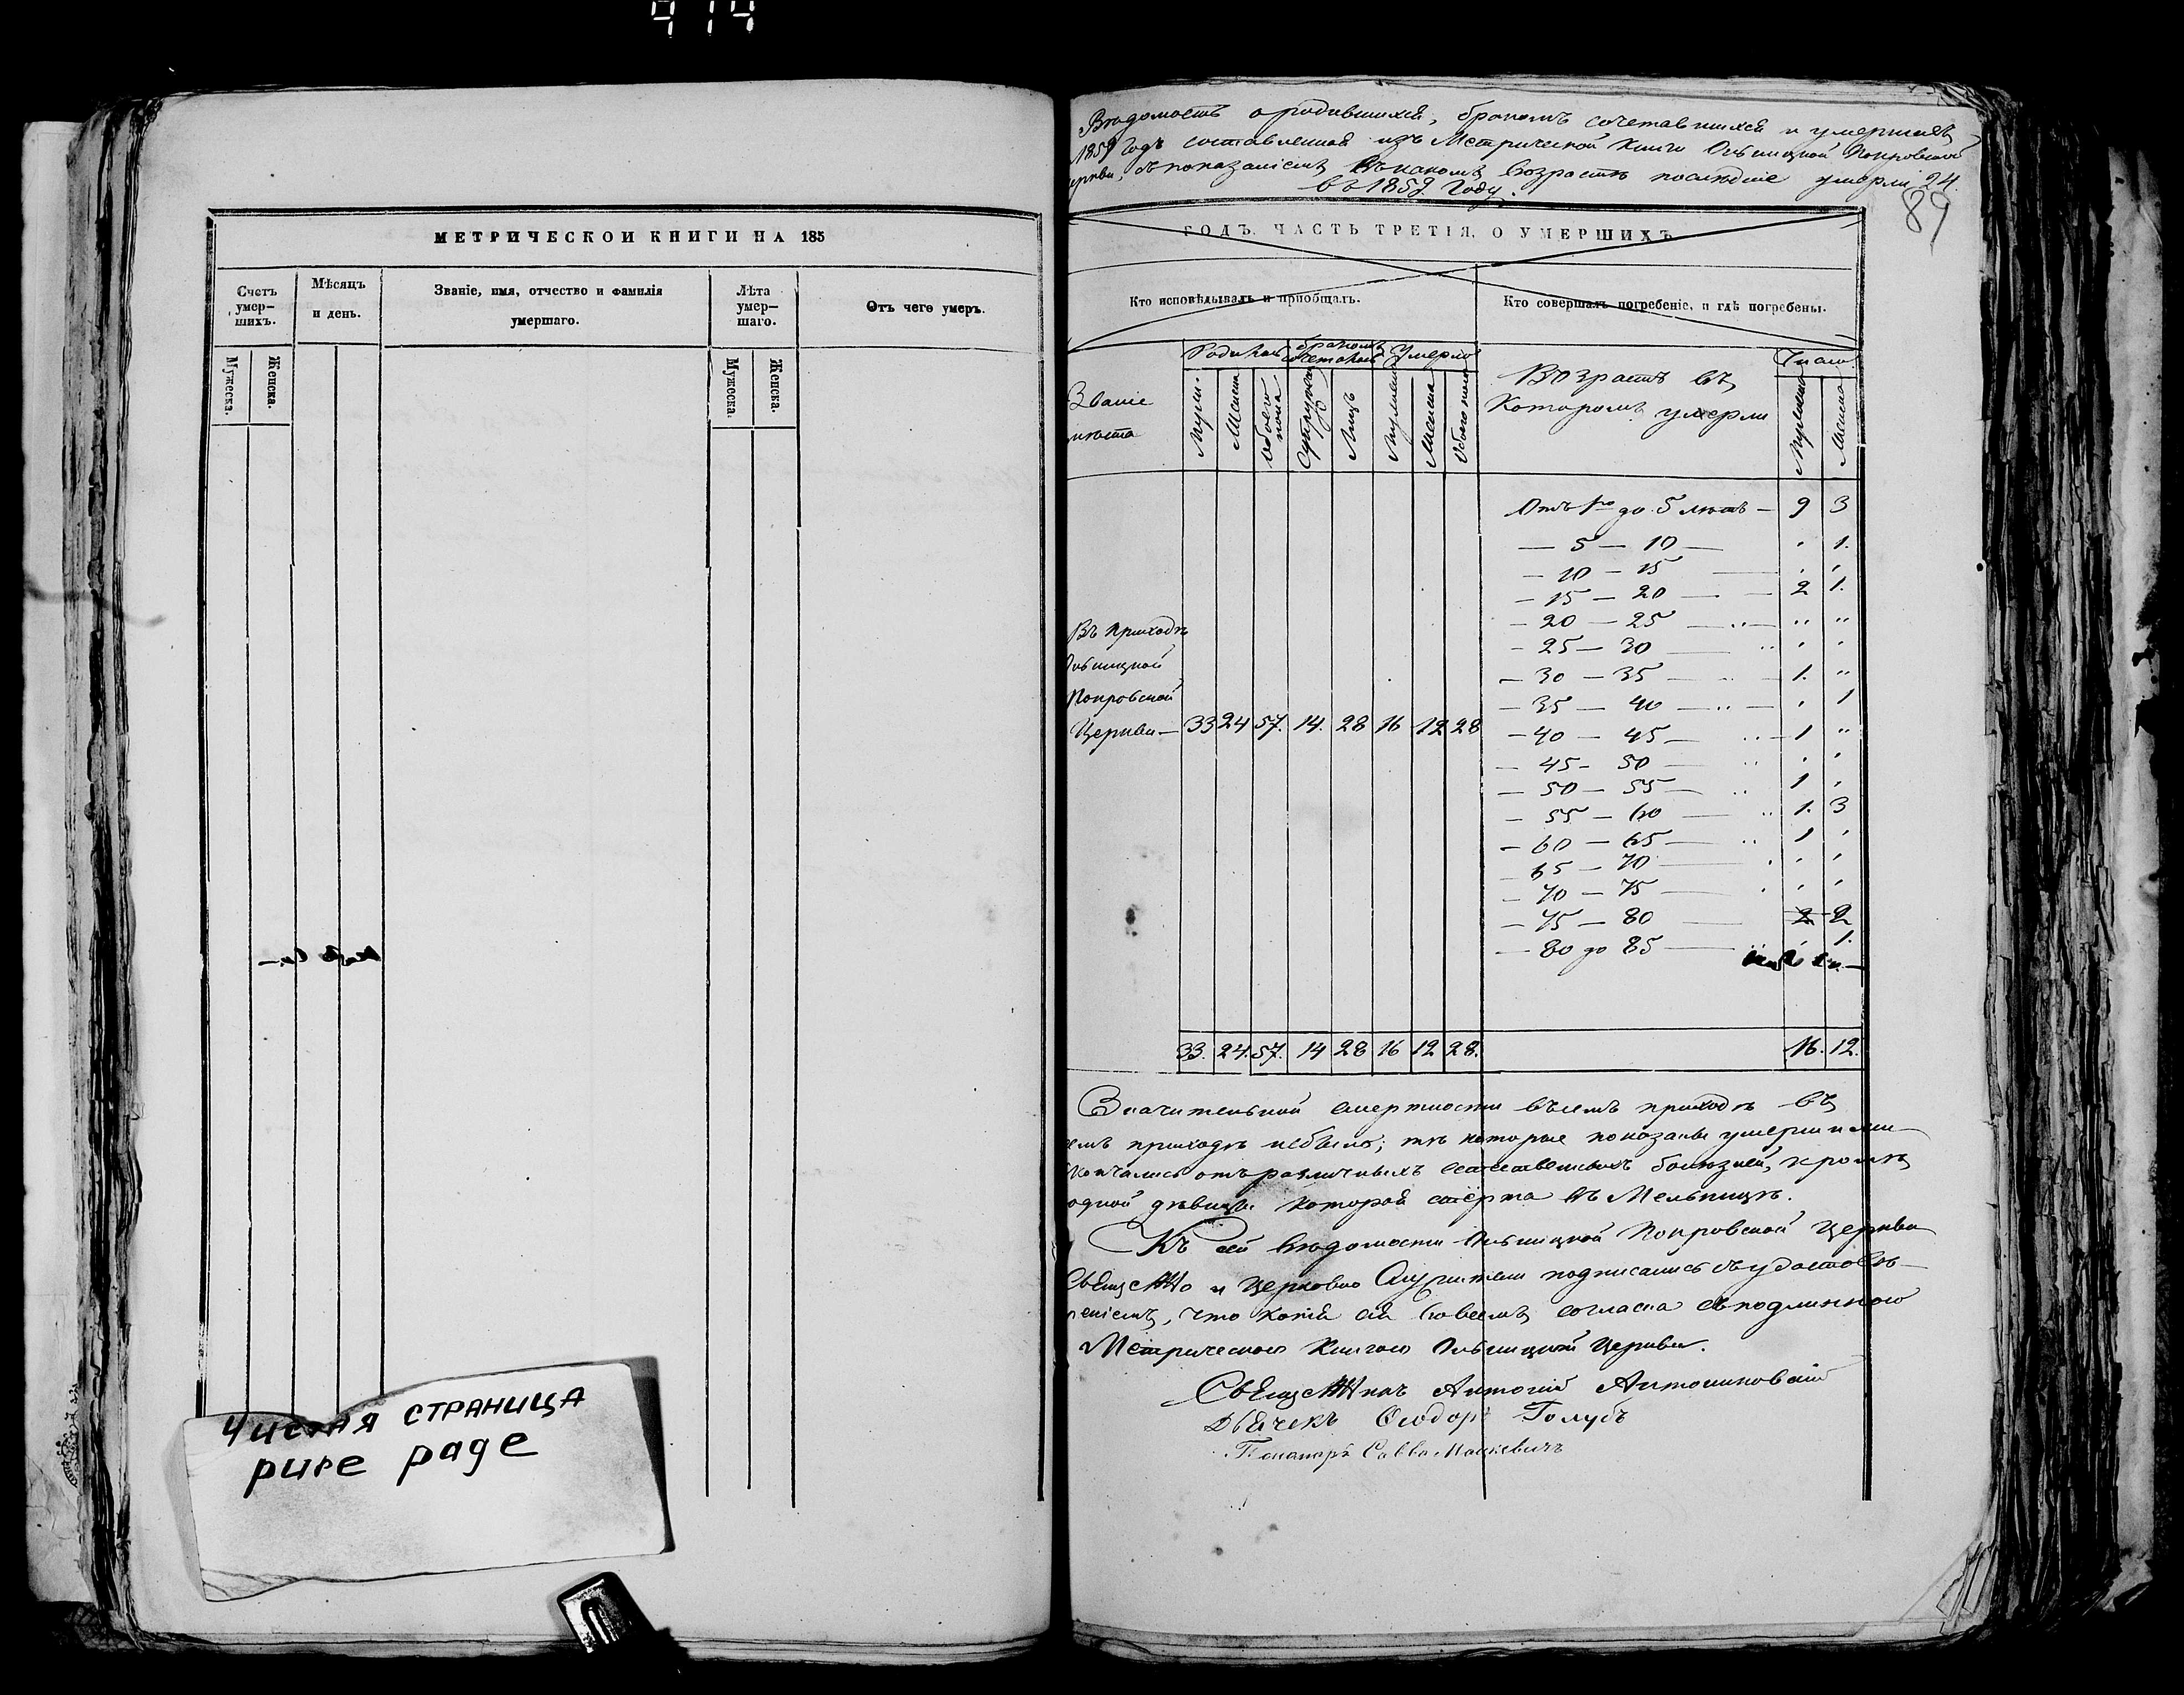 414
МЕТРИЧЕСКОЙ КНИГИ НА 185
Счетъ умер-шихъ.
Мѣсяцъ и день.
Званіе, имя, отчество и фамилія умершаго.
Лѣта умер-шаго.
Отъ чего умеръ.
Мужеска. Женска.
Мужеска. Женска.
Чистая страница
pure page
Вѣдомость о родившихся, бракомъ сочетавшихся и умершихъ
1859 годъ составленная изъ Метрической Книги Ольшицкой Покровской
съ показаніемъ въ какомъ возрастѣ послѣдніе умерли 24.
въ 1859 году.
89
ГОДЪ. ЧАСТЬ ТРЕТІЯ, О УМЕРШИХЪ
Кто исповѣдывалъ и пріобщалъ.
Кто совершалъ погребеніе, и гдѣ погребены.
Званіе
мѣста
Родилось
бракомъ сочеталось
Умерло
Муж. Женска обоего пола Супруж. Лицъ Мужеска Женска Обоего пола
Возрастъ въ
Которомъ умерли
Число
Мужеска Женска
Отъ 1го до 5 лѣтъ — 9 3
— 5 — 10 — 1.
— 10 — 15
— 15 — 20 — 2 1.
— 20 — 25 —
— 25 — 30 —
— 30 — 35 — 1.
— 35 — 40 — 1
— 40 — 45 — 1
— 45 — 50 —
— 50 — 55 — 1
— 55 — 60 — 1. 3
— 60 — 65 — 1
— 65 — 70 —
— 70 — 75 —
— 75 — 80 — 2 2
— 80 до 85 — 1.
Въ приходѣ
Покровской
Церкви — 33 24 57. 14. 28 16 12 28
33. 24. 57. 14 28 16 12 28.
16. 12.
Значительной смертности въ семъ приходѣ въ
приходѣ небыло; тѣ которые показаны умершими
скончались отъ различныхъ естественныхъ болѣзней, кромѣ
одной дѣвицы которая стёрта въ Мельницѣ.
Къ сей вѣдомости Покровской Церкви
Священно и Церковно Служители подписались съ удостовѣ-
реніемъ, что копія сія совсемъ согласна съ подлинною
Метрическою Книгою Церкви.
Священникъ Антоній Антониковскій
Дьячекъ Ѳеодоръ Голубъ
Пономарь Савва Мацкевичъ